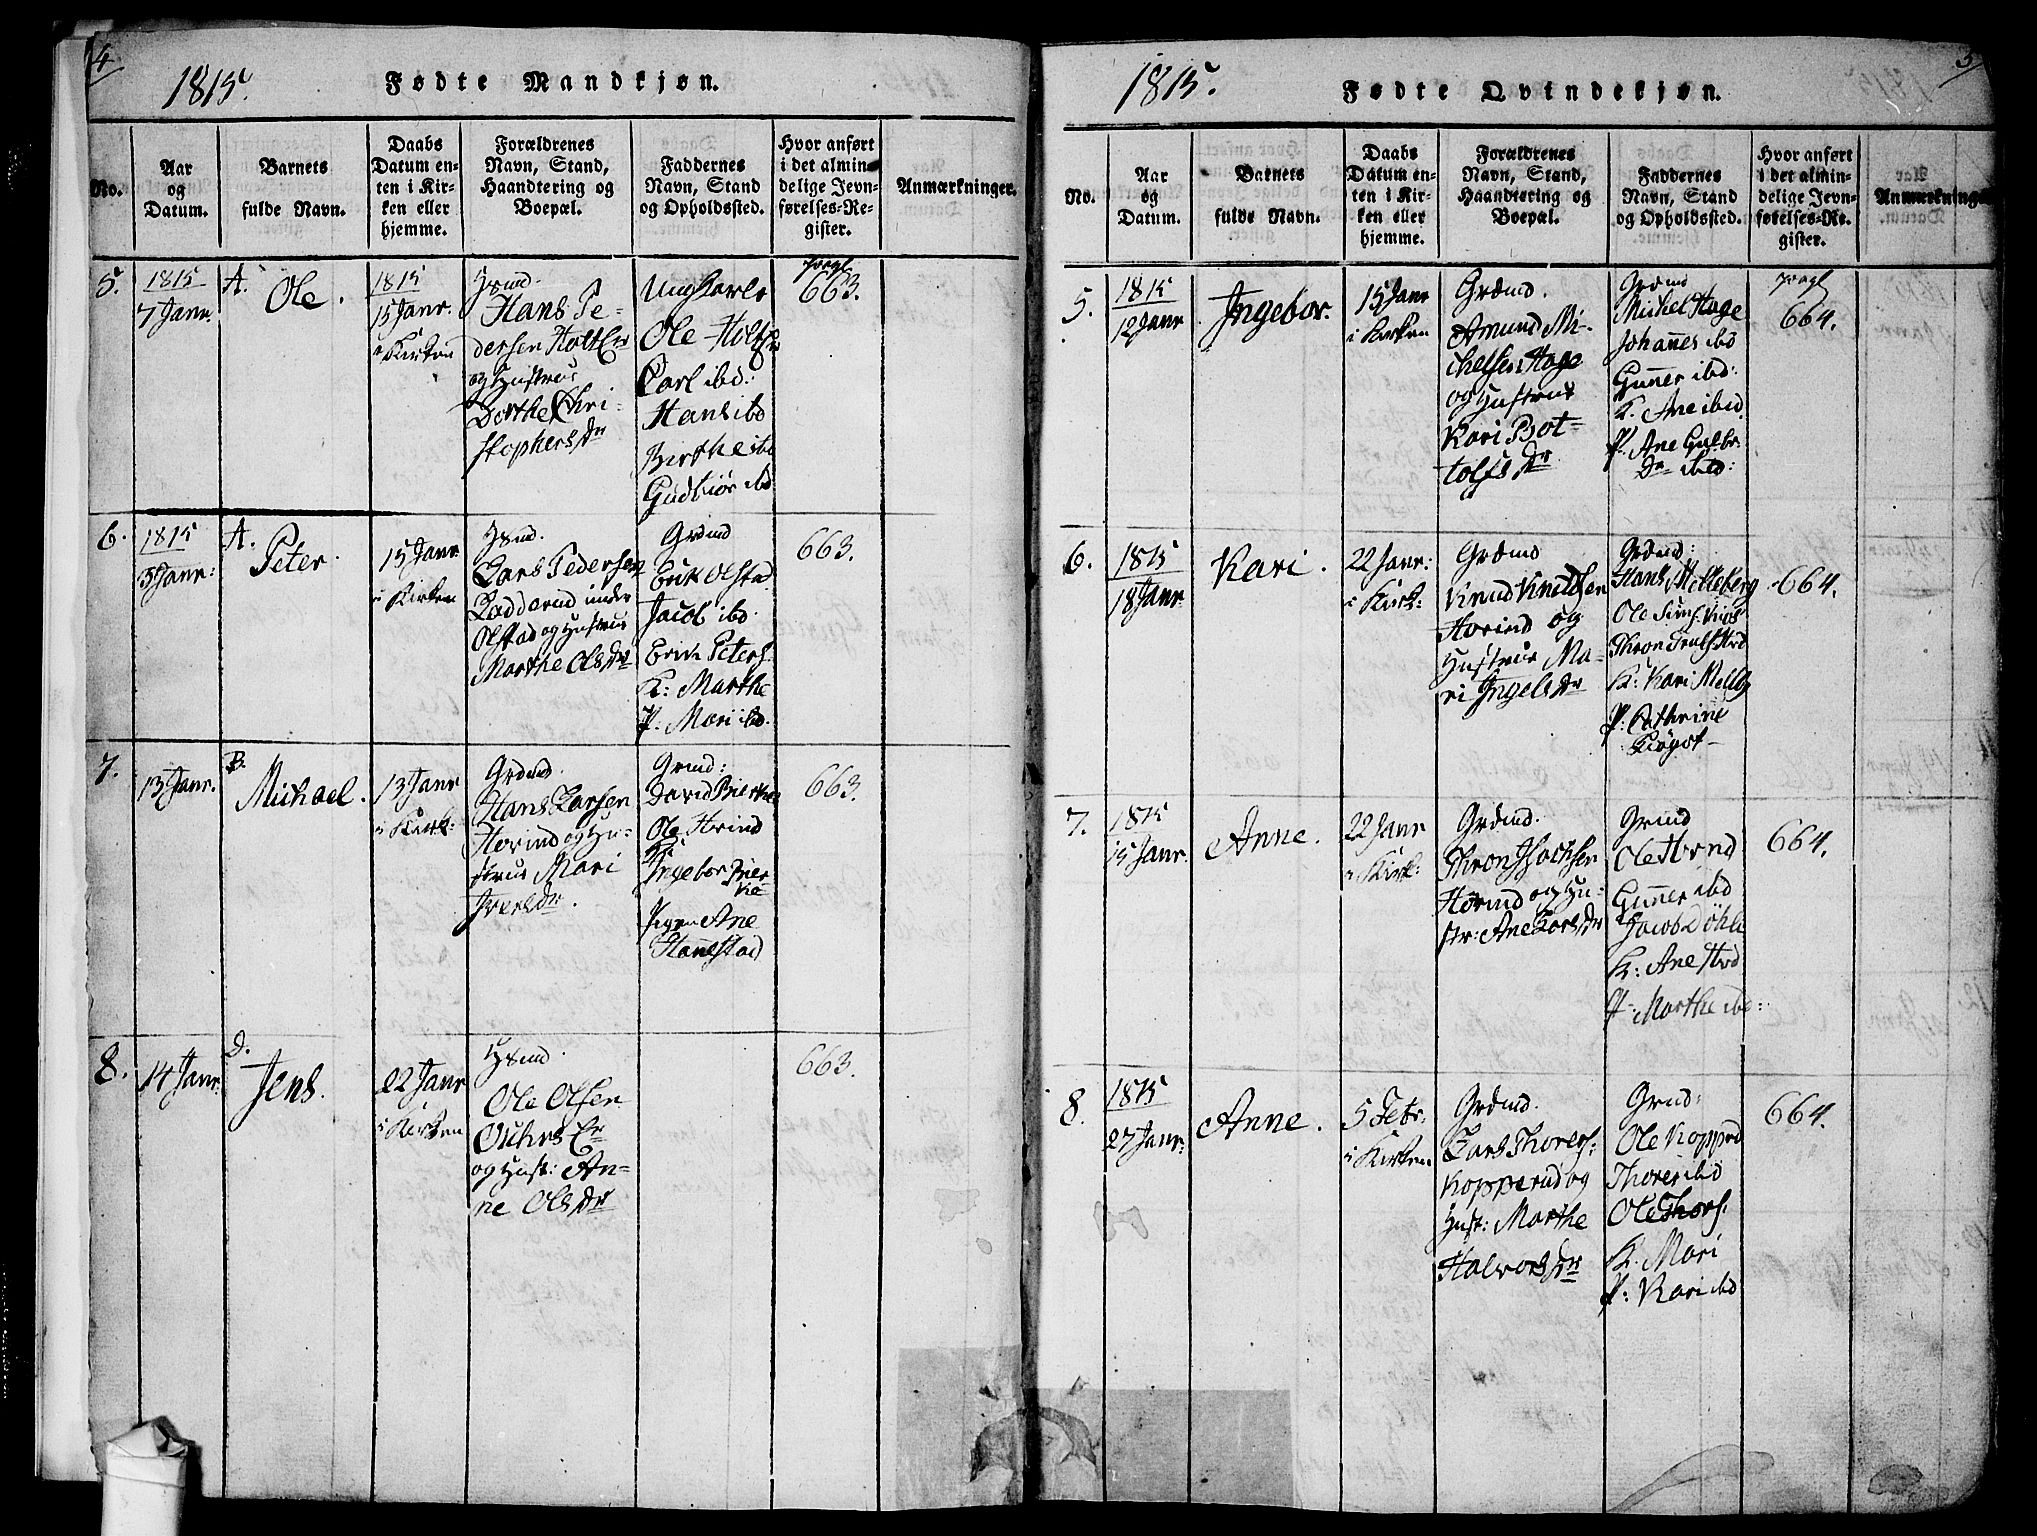 4
1815.
Fødte Mandkjøn.
No.
Aar
og
Datum.
Barnets
fulde Navn.
Daabs
Datum en-
ten i Kir-
ken eller
hjemme.
Forældrenes
Navn, Stand,
Haandtering og
Boepæl.
Faddernes
Navn, Stand
og Opholdssted.
Hvor anført
i det almin-
delige Jevn-
førelses-Re-
gister.
Anmærkninger.
5.
1815
7 Janr.
A.
Ole.
1815
15 Janr.
i Kirken
Hsmd.
Hans Pe-
dersen Holt
og Hustrue
Dorthe Chri-
stophersdr
Ungkarle
Ole Holts
Carl ibd:
Hans ibd
Birthe ibd
Gudbiør ibd
663.
6.
1815
3 Janr:
A.
Peter.
15 Janr
i Kirken
Hsmd.
Lars Pedersen
under
Olstad og Hustrue
Marthe Olsdr
Grdmd
Erik Olstad
Jacob ibd
Erik Peters.
K: Marthe
P: Mari ibd.
663.
7.
13 Janr.
B.
Michael.
13 Janr
i Kirk:
Grdmd.
Hans Larsen
Horind og Hu-
strue Mari
Iversdr.
Grmd:
David Bierke
Ole Horind
Ingebor Bier
ke
Pigen Ane
Hannestad
663.
8.
14 Janr.
D.
Jens.
22 Janr
i Kirken
Hsmd
Ole Olsen
og Hust: An-
ne Olsdr
663.
5
1815.
Fødte Qvindekjøn.
No.
Aar
og
Datum.
Barnets
fulde Navn.
Daabs
Datum en-
ten i Kir-
ken eller
hjemme.
Forældrenes
Navn, Stand,
Haandtering og
Boepæl.
Faddernes
Navn, Stand
og Opholdssted.
Hvor anført
i det almin-
delige Jevn-
førelses-Re-
gister.
Anmærkninge
5.
1815
12 Janr
Ingebor.
15 Janr
i Kirken
Grdmd.
Amund Mi-
chelsen Hage
og Hustrue
Kari Bot-
tolfsdr
Grdmd
Michel Hage
Johannes ibd
Gunner ibd:
K. Ane ibid.
P. Ane Gulbr.
Dr ibid:
664.
6.
1815
18 Janr
Kari.
22 Janr:
i Kirk:
Grdmd
Knud Knudsen
Horind og
Hustrue Ma-
ri Ingelsdr
Grdmd:
Hans Melleberg
Ole
Thron
K: Kari Melleb
P. Cathrine
664.
7.
1815
15 Janr.
Anne.
22 Janr
i Kirk:
Grdmd.
Thron Jsachsen
Horind og Hu-
str: Ane Larsdr
Grmd
Ole Hornd
Gunner ibd
Jacob Døhle
K: Ane
P: Marthe ibd:
664.
8.
1815
27 Janr:
Anne.
5 Febr.
i Kirken
Grdmd.
Lars Thorers.
Kopperud og
Hust: Marthe
Halvorsdr
Grmd:
Ole Kopprd
Thorer ibd
Ole Thors.
K. Mari
P: Kari ibd
664.